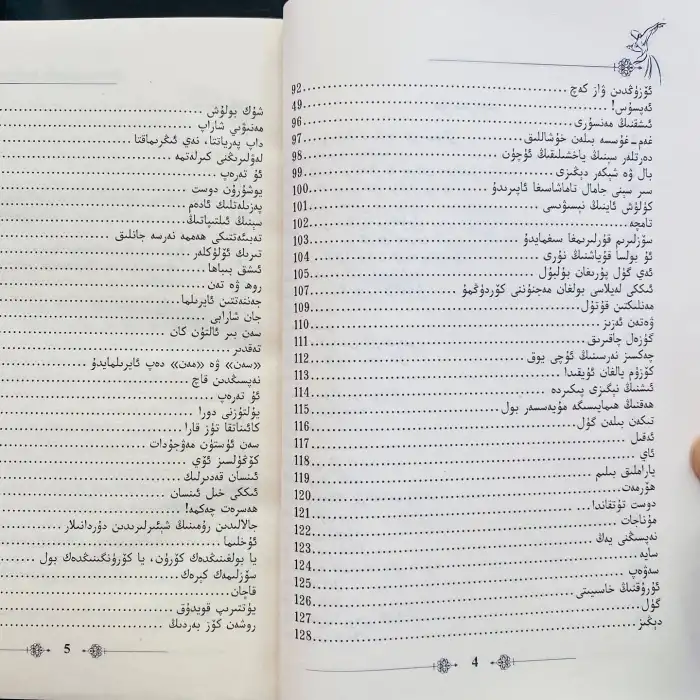 ئۆزۈڭدىن ۋاز كەچ ........ 92
ئەپسۇس! ........ 49
ئىشقنىڭ مەنسۇرى ........ 96
غەم-غۇسسە بىلەن خۇشاللىق ........ 97
دەرتلەر سېنىڭ ياخشىلىقىڭ ئۈچۈن ........ 98
بال ۋە شېكەر دېڭىزى ........ 99
سىر سېنى جامال تاماشاسىغا ئاپىرىدۇ ........ 100
كۈلۈش ئاينىڭ نېسىۋىسى ........ 101
تامچە ........ 102
سۆزلىرىم قۇرلىرىمغا سىغمايدۇ ........ 103
ئۇ بولسا قۇياشنىڭ نۇرى ........ 104
ئەي گۈل پۇرىغان بۇلبۇل ........ 105
ئىككى لەيلاسى بولغان مەجنۇننى كۆردۈڭمۇ ........ 107
مەنلىكتىن قۇتۇل ........ 109
ۋەتەن ئەزىز ........ 110
گۈزەل چاقىرىق ........ 111
چەكسىز نەرسىنىڭ ئۇچى يوق ........ 112
كۆزۈم يالغان ئۇيقىدا ........ 113
ئىشنىڭ نېگىزى پىكىردە ........ 114
ھەقنىڭ ھىمايىسىگە مۇيەسسەر بول ........ 115
تىكەن بىلەن گۈل ........ 116
ئەقىل ........ 117
ئاي ........ 118
ياراملىق بىلىم ........ 119
ھۆرمەت ........ 120
دوست تۇتقاندا ........ 121
مۇناجات ........ 122
نەپسىڭنى يەڭ ........ 123
سايە ........ 124
سەۋەپ ........ 125
ئۇرۇقنىڭ خاسىيىتى ........ 126
گۈل ........ 127
دېڭىز ........ 128
4
شۈك بولۇش ........
مەنىۋىي شاراپ ........
داپ پەرياتتا، نەي ئىڭرىماقتا ........
لەۋلىرىڭنى كىرلەتمە ........
ئۇ تەرەپ ........
يوشۇرۇن دوست ........
پەزىلەتلىك ئادەم ........
سېنىڭ ئىلتىپاتىڭ ........
تەبىئەتتىكى ھەممە نەرسە جانلىق ........
تىرىك ئۆلۈكلەر ........
ئىشق بىباھا ........
روھ ۋە تەن ........
جەننەتتىن ئايرىلما ........
جان شارابى ........
سەن بىر ئالتۇن كان ........
تەقدىر ........
«سەن» ۋە «مەن» دەپ ئايرىلمايدۇ ........
نەپسىڭدىن قاچ ........
ئۇ تەرەپ ........
يۇلتۇزنى دورا ........
كائىناتقا تۈز قارا ........
سەن ئۈستۈن مەۋجۇدات ........
كۆڭۈلسىز ئۆي ........
ئىنسان قەدىرلىك ........
ئىككى خىل ئىنسان ........
ھەسرەت چەكمە! ........
جالالىدىن رۇمىنىڭ شېئىرلىرىدىن دۇردانىلار ........
ئۇخلىما ........
يا بولغىنىڭدەك كۆرۈن، يا كۆرۈنگىنىڭدەك بول ........
سۆزلىمەك كېرەك ........
قاچان ........
يۈتتىرىپ قويدۇق ........
روشەن كۆز بەردىڭ ........
5